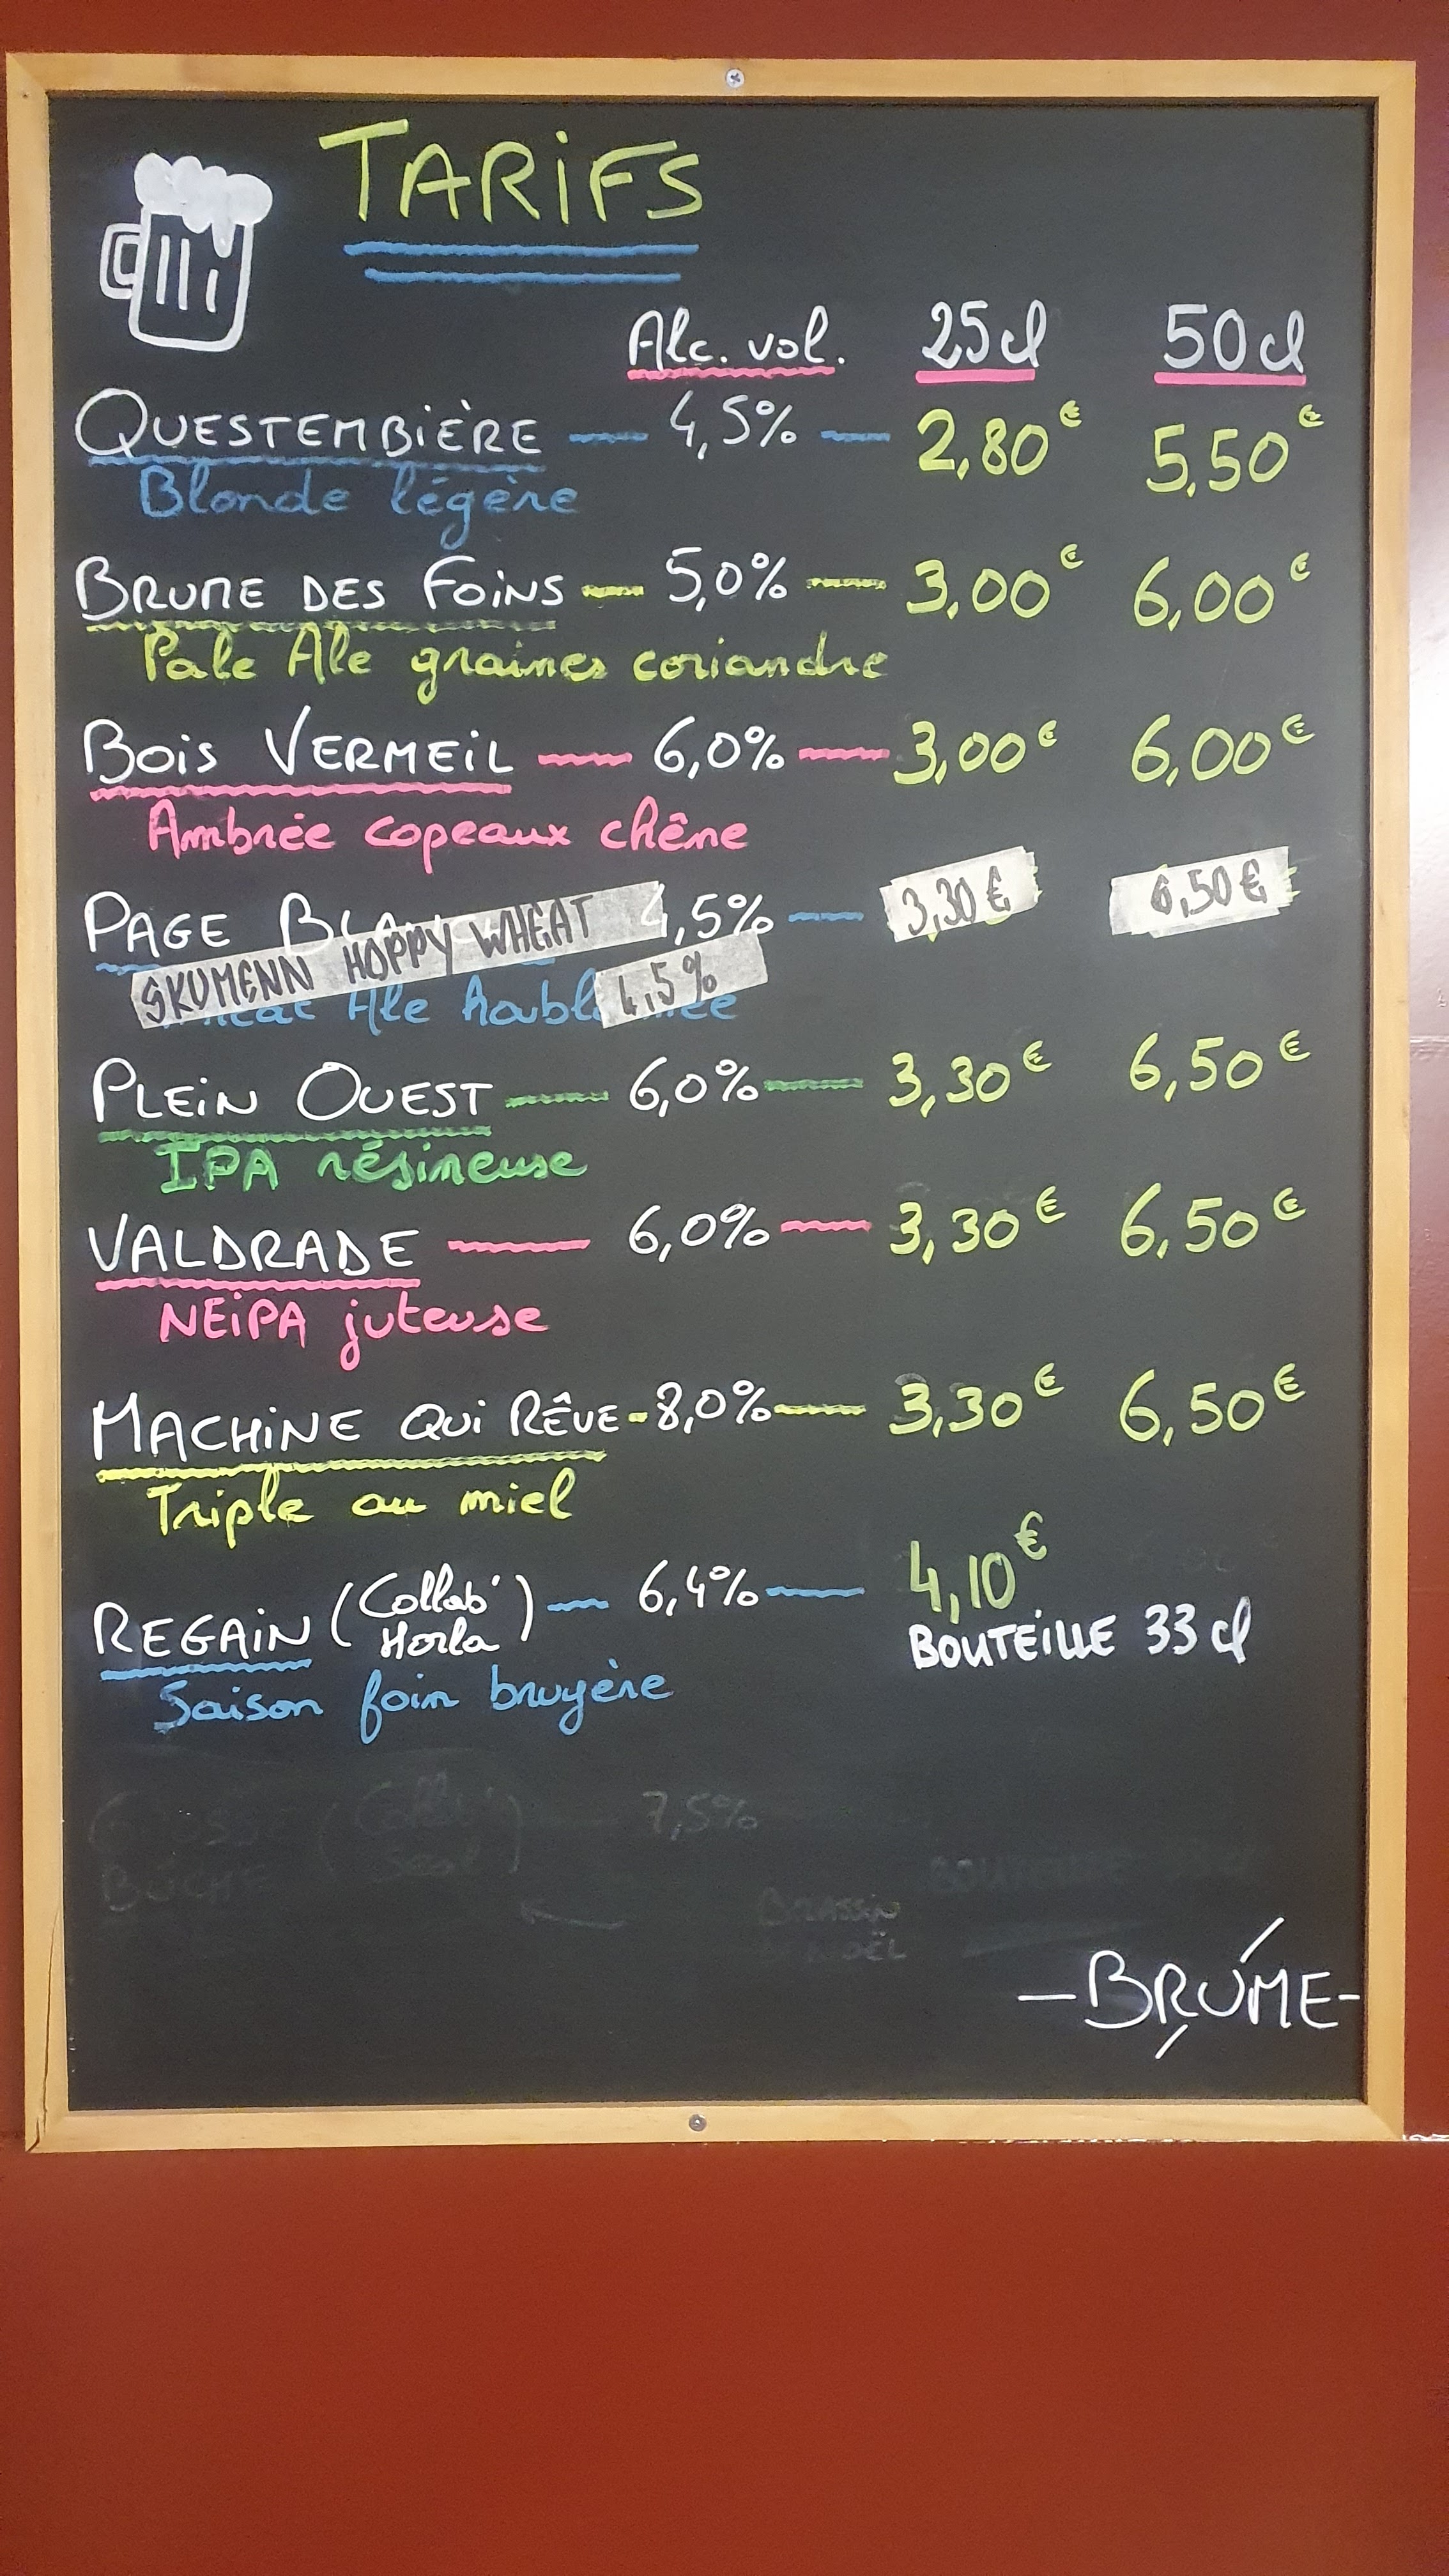 TARIFS
Alc. vol. 25cl 50cl
QUESTEMBIÈRE — 4,5% — 2,80€ 5,50€
Blonde légère
BRUME DES FOINS — 5,0% — 3,00€ 6,00€
Pale Ale graines coriandre
BOIS VERMEIL — 6,0% — 3,00€ 6,00€
Ambrée copeaux chêne
PAGE 4,5% — 3,30€ 6,50€
SKUMENN HOPPY WHEAT
4,5%
Ale
PLEIN OUEST — 6,0% — 3,30€ 6,50€
IPA résineuse
VALDRADE — 6,0% — 3,30€ 6,50€
NEIPA juteuse
MACHINE QUI RÊVE - 8,0% — 3,30€ 6,50€
Triple au miel
REGAIN (Collab' Horla) — 6,4% — 4,10€
BOUTEILLE 33cl
Saison foin bruyère
7,5%
BÛCHE
BRASSIN
-BRUME-